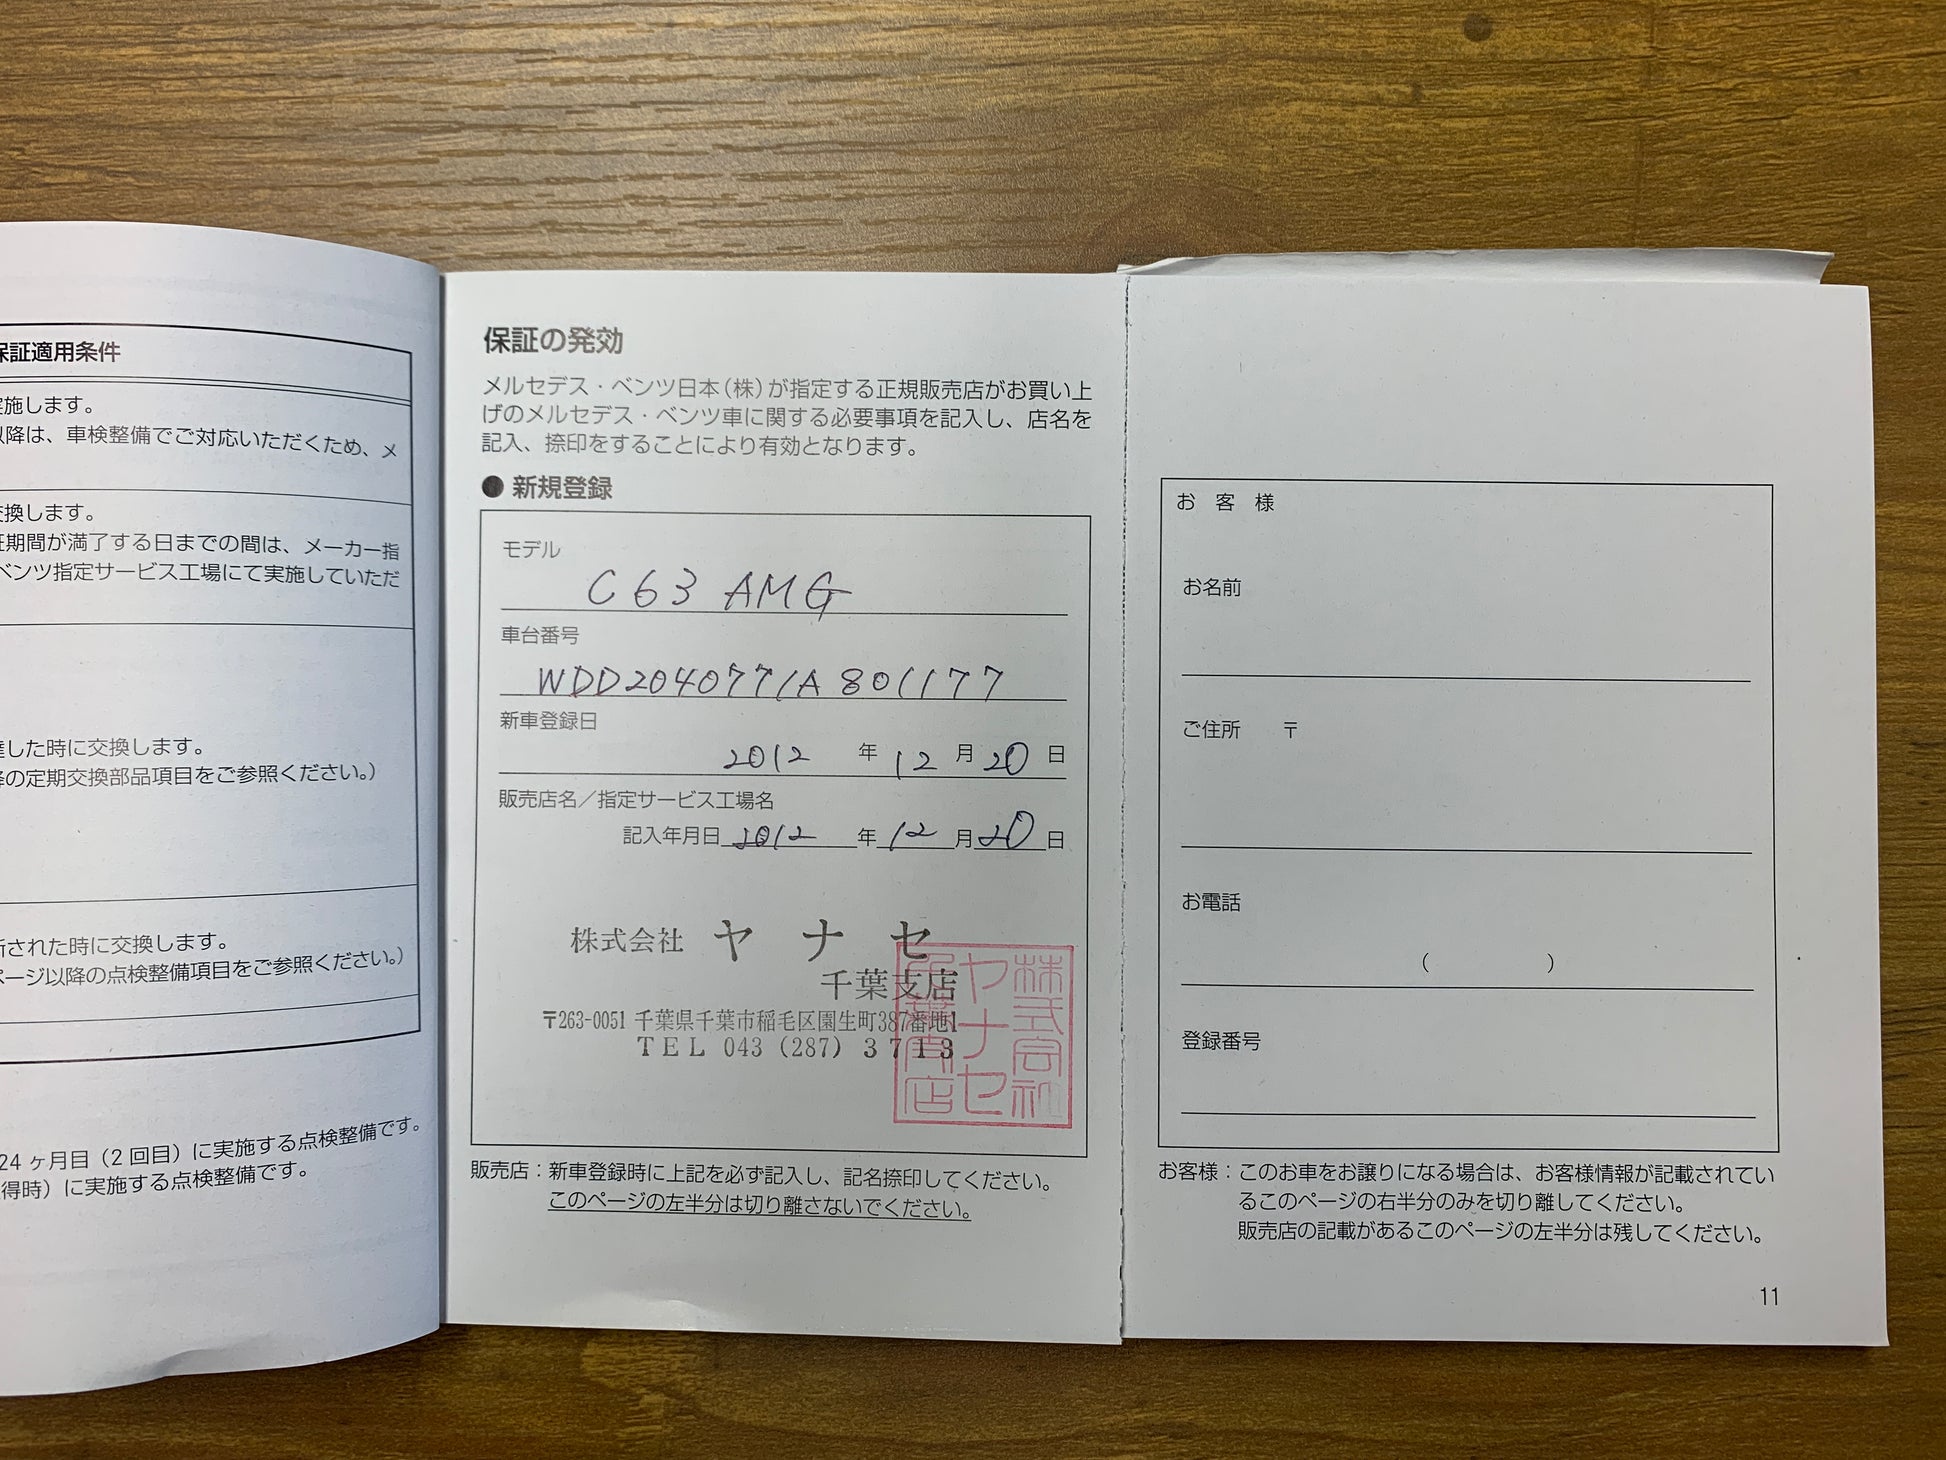 保証適用条件
実施します。
以降は、車検整備でご対応いただくため、メ
交換します。
証期間が満了する日までの間は、メーカー指
ベンツ指定サービス工場にて実施していただ
達した時に交換します。
降の定期交換部品項目をご参照ください。）
断された時に交換します。
ページ以降の点検整備項目をご参照ください。）
24 ヶ月目（2 回目）に実施する点検整備です。
得時）に実施する点検整備です。
保証の発効
メルセデス・ベンツ日本（株）が指定する正規販売店がお買い上
げのメルセデス・ベンツ車に関する必要事項を記入し、店名を
記入、捺印をすることにより有効となります。
● 新規登録
モデル
C63 AMG
車台番号
WDD2040771A801177
新車登録日
2012 年 12 月 20 日
販売店名／指定サービス工場名
記入年月日 2012 年 12 月 20 日
株式会社 ヤナセ
千葉支店
〒263-0051 千葉県千葉市稲毛区園生町387番地1
TEL 043 (287) 3713
株式会社
ヤナセ
千葉支店
販売店：新車登録時に上記を必ず記入し、記名捺印してください。
このページの左半分は切り離さないでください。
お 客 様
お名前
ご住所 〒
お電話
( )
登録番号
お客様：このお車をお譲りになる場合は、お客様情報が記載されてい
るこのページの右半分のみを切り離してください。
販売店の記載があるこのページの左半分は残してください。
11